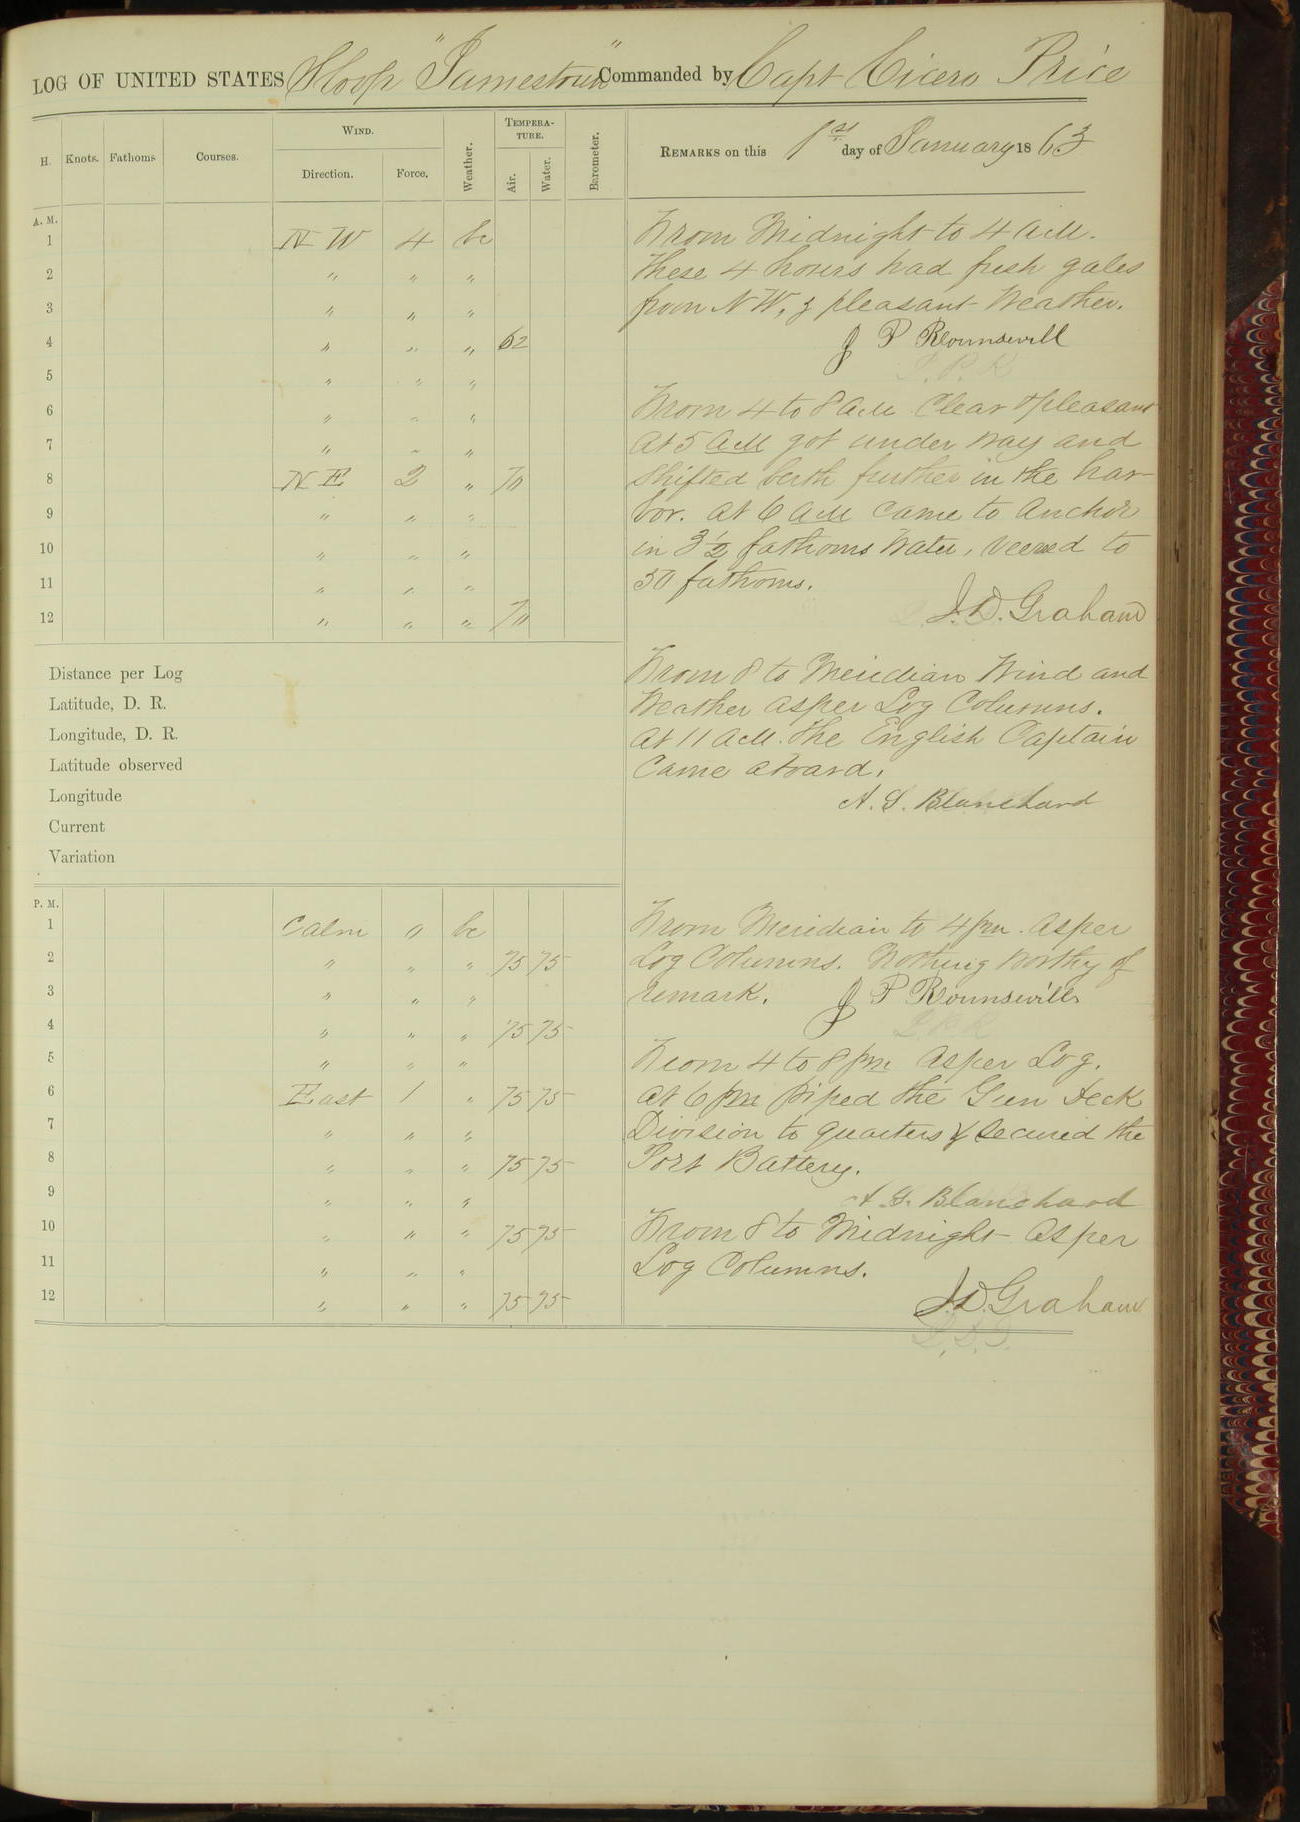 LOG OF UNITED STATES Sloop "Jamestown" Commanded by Capt Cicero Price
H. Knots. Fathoms Courses. WIND. Direction. Force. Weather. TEMPERATURE. Air. Water. Barometer. REMARKS on this 1st day of January 1863
A. M.
1 N W 4 bc
2 " " "
3 " " "
4 " " " 62
5 " " "
6 " " "
7 " " "
8 N E 2 " 70
9 " " "
10 " " "
11 " " "
12 " " " 70
From Midnight to 4 AM.
These 4 hours had fresh gales
from N W, & pleasant Weather.
J P Rounsevill
From 4 to 8 AM Clear & pleasant
At 5 AM got under way and
Shifted berth further in the har-
bor. At 6 AM Came to Anchor
in 3 1/2 fathoms Water, veered to
30 fathoms.
J. D. Graham
Distance per Log
Latitude, D. R.
Longitude, D. R.
Latitude observed
Longitude
Current
Variation
From 8 to Meridian Wind and
Weather As per Log Columns.
At 11 AM. The English Captain
Came aboard.
A. S. Blanchard
P. M.
1 Calm 0 bc
2 " " " 75 75
3 " " "
4 " " " 75 75
5 " " "
6 East 1 " 75 75
7 " " "
8 " " " 75 75
9 " " "
10 " " " 75 75
11 " " "
12 " " " 75 75
From Meridian to 4 pm. As per
Log Columns. Nothing Worthy of
remark. J P Rounsevill
From 4 to 8 pm As per Log.
At 6 pm piped the Gun Deck
Division to quarters & Secured the
Port Battery.
A. S. Blanchard
From 8 to Midnight As per
Log Columns.
J. D. Graham